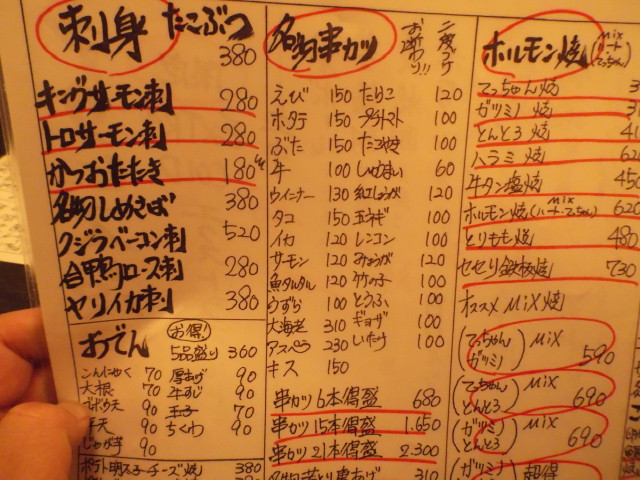 刺身
たこぶつ 380
キングサーモン刺 280
トロサーモン刺 280
かつおたたき 180
名物しめさば 380
クジラベーコン刺 520
合鴨ロース刺 280
ヤリイカ刺 380
おでん お得!
5品盛り 360
こんにゃく 70 厚あげ 90
大根 70 牛すじ 90
ゴボウ天 90 玉子 70
平天 90 ちくわ 90
じゃが芋 90
ポテト明太子チーズ焼 380
名物串カツ
二度ヅケ
お断わり!!
えび 150 たらこ 120
ホタテ 150 プチトマト 100
ぶた 150 たこやき 100
牛 100 しゅうまい 60
ウインナー 130 紅しょうが 120
タコ 150 玉ネギ 100
イカ 120 レンコン 100
サーモン 120 みょうが 120
魚タルタル 120 竹の子 100
うずら 100 とうふ 100
大海老 310 ギョーザ 100
アスパラ 230 しいたけ 100
キス 150
串カツ6本得盛 680
串カツ15本得盛 1.650
串カツ21本得盛 2.300
310
ホルモン焼 (mix ハート てっちゃん)
てっちゃん焼
ガツミノ焼
とんとろ焼
ハラミ焼
牛タン塩焼 450
ホルモン焼(ハートてっちゃん) mix 620
とりもも焼 480
セセリ鉄板焼 730
オススメ MiX焼
(てっちゃん ガツミノ) MiX 590
(てっちゃん とんとろ) MiX 690
(ガツミノ とんとろ) MiX 690
超得